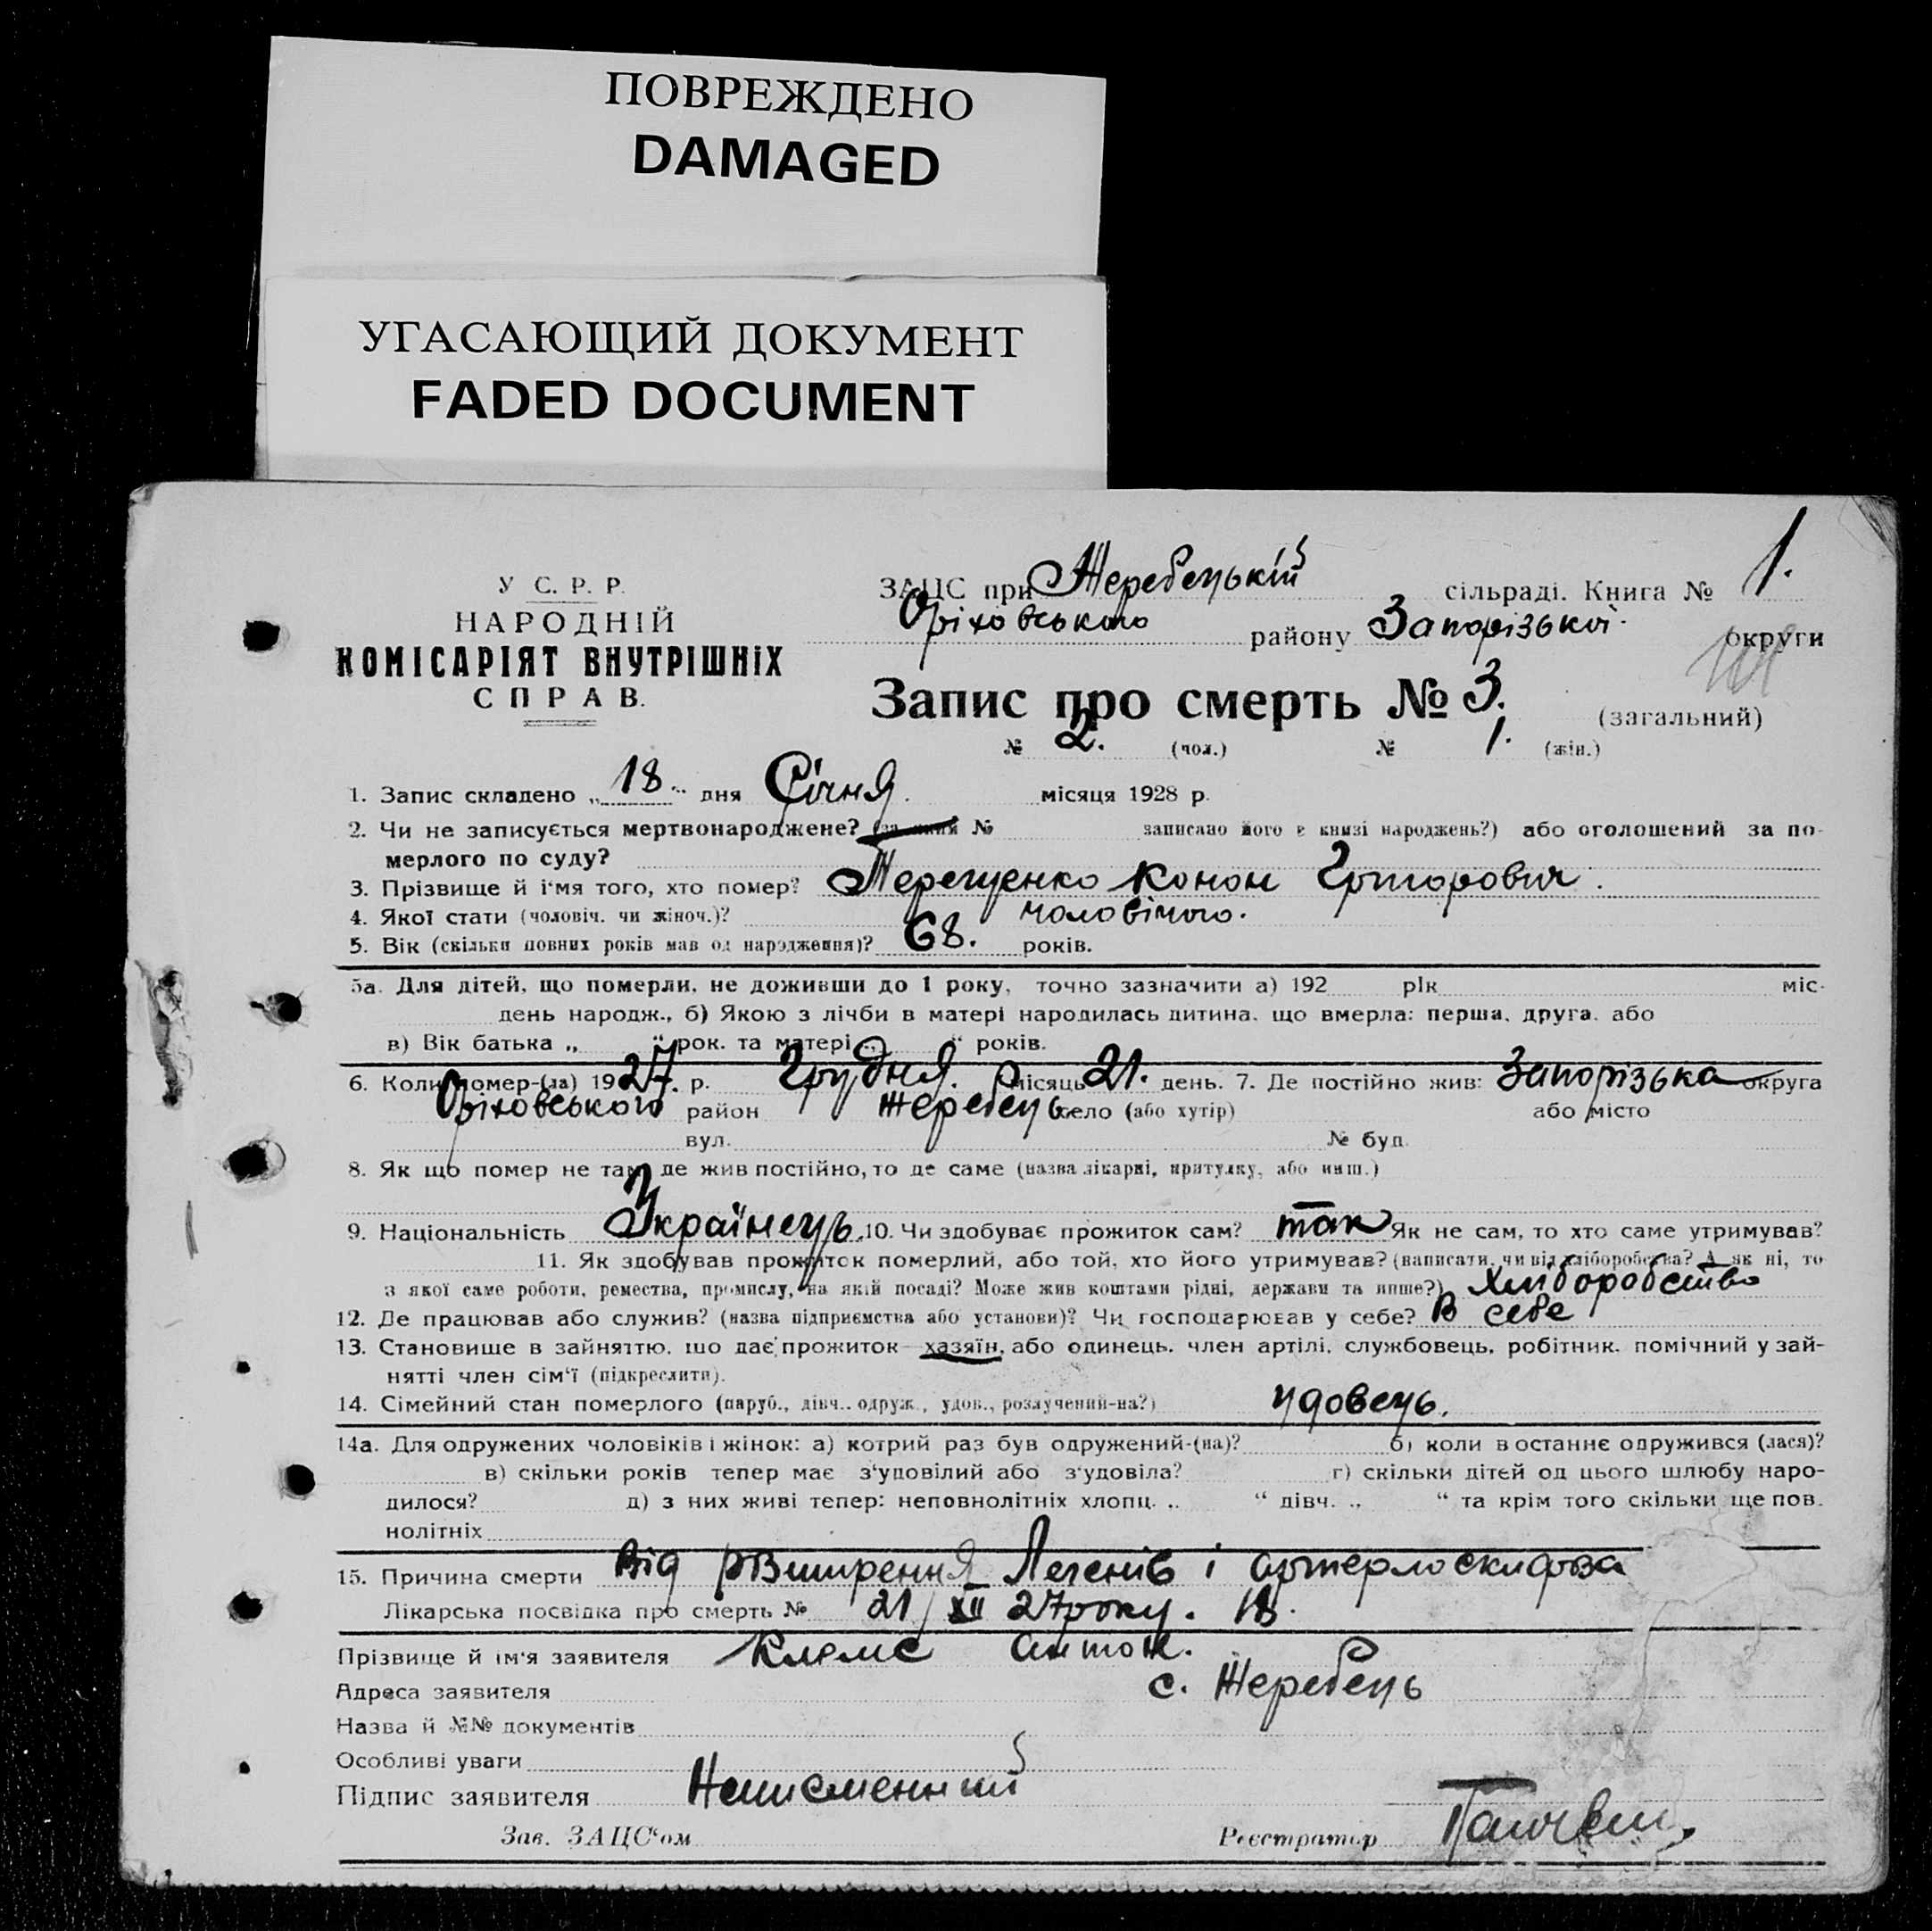 ПОВРЕЖДЕНО
DAMAGED
УГАСАЮЩИЙ ДОКУМЕНТ
FADED DOCUMENT
У С. Р. Р.
НАРОДНІЙ
КОМІСАРІЯТ ВНУТРІШНІХ
СПРАВ.
ЗАЦС при Жеребецькій сільраді. Книга № 1.
Оріховського району Запорізької округи
Запис про смерть № 3. (загальний)
№ 2. (чол.) № 1. (жін.)
1. Запис складено „ 18 " дня Січня місяця 1928 р.
2. Чи не записується мертвонароджене? (за яким № записано його в книзі народжень?) або оголошений за по-
мерлого по суду?
3. Прізвище й і'мя того, хто помер? Терещенко Конон Григорович.
4. Якої стати (чоловіч. чи жіноч.)? чоловічого.
5. Вік (скільки повних років мав од народження)? 68. років.
5а. Для дітей, що померли, не доживши до 1 року, точно зазначити а) 192 рік міс-
день народж., б) Якою з лічби в матері народилась дитина, що вмерла: перша, друга, або
в) Вік батька „ " рок. та матері „ " років.
6. Коли помер-(ла) 1927. р. Грудня. місяць 21. день. 7. Де постійно жив: Запорізька округа
Оріховського район Жеребець село (або хутір) або місто
вул. № буд.
8. Як що помер не там, де жив постійно, то де саме (назва лікарні, притулку, або инш.)
9. Національність Українець. 10. Чи здобуває прожиток сам? так Як не сам, то хто саме утримував?
11. Як здобував прожиток померлий, або той, хто його утримував? (написати, чи від хліборобства? А як ні, то
з якої саме роботи, ремества, промислу, на якій посаді? Може жив коштами рідні, держави та инше?) Хліборобство
12. Де працював або служив? (назва підприємства або установи)? Чи господарював у себе? В себе
13. Становище в зайняттю, що дає прожиток хазяїн, або одинець, член артілі, службовець, робітник, помічний у зай-
нятті член сім'ї (підкреслити).
14. Сімейний стан померлого (паруб., дівч., одруж., удов., розлучений-на?) удовець.
14а. Для одружених чоловіків і жінок: а) котрий раз був одружений-(на)? б) коли в останнє одружився (лася)?
в) скільки років тепер має з'уповілий або з'удовіла? г) скільки дітей од цього шлюбу наро-
дилося? д) з них живі тепер: неповнолітніх хлопц. „ " дівч. „ " та крім того скільки ще пов.
нолітніх
15. Причина смерти Від розширення Легенів і
Лікарська посвідка про смерть № 21/XII 27 року.
Прізвище й ім'я заявителя Антон.
Адреса заявителя с. Жеребець
Назва й №№ документів
Особливі уваги
Підпис заявителя Неписменний
Зав. ЗАЦС'ом Реєстратор